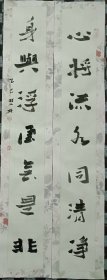 心將流水同清淨
身與浮雲無是非